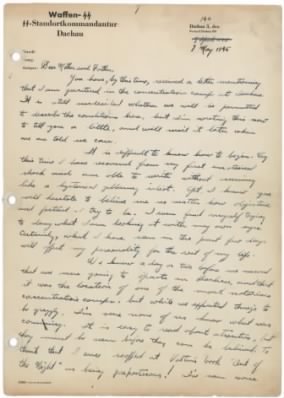 Waffen-SS
SS-Standortkommandantur
Dachau
Dachau 3, den
7 May 1945
Dear Mother and Father,
You have, by this time, received a letter mentioning
that I am quartered in the concentration camp at Dachau.
It is still undecided whether we will be permitted
to describe the conditions here, but I'm writing this now
to tell you a little, and will mail it later when
we are told we can.
It is difficult to know how to begin. By
this time I have recovered from my first emotional
shock and am able to write without seeming
like a hysterical gibbering idiot. Yet, I know you
will hesitate to believe me no matter how objective
and factual I try to be. I even find myself trying
to deny what I am looking at with my own eyes.
Certainly, what I have seen in the past few days
will affect my personality for the rest of my life.
We knew a day or two before we moved
that we were going to operate in Dachau, and that
it was the location of one of the most notorious
concentration camps, but while we expected things to
be grizzly, I'm sure none of us knew what was
coming. It is easy to read about atrocities, but
they must be seen before they can be believed. To
think that I once scoffed at Valtin's book "Out of
the Night" as being preposterous! I've seen some